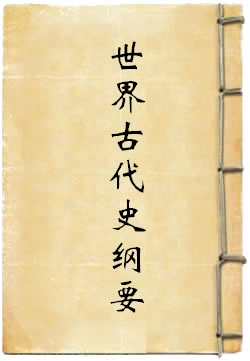 世界古代史纲要